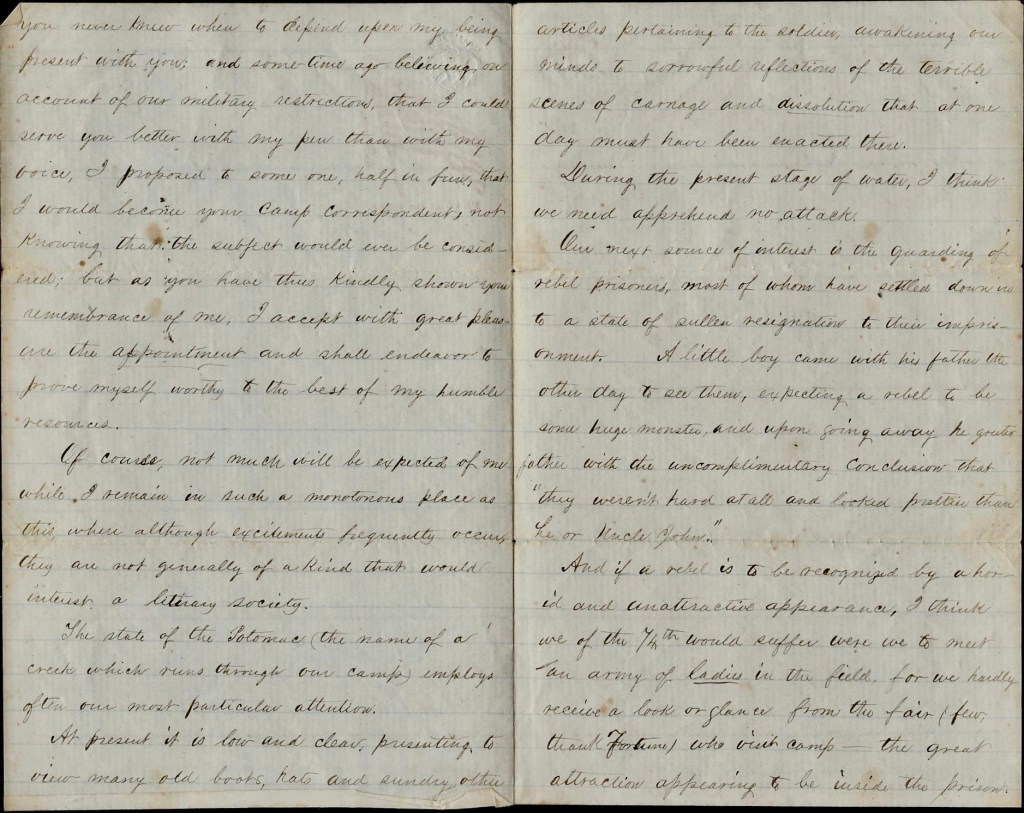 you never knew when to depend upon my being
present with you; and some time ago believing, on
account of our military restrictions, that I could
serve you better with my pen than with my
voice, I proposed to some one, half in fun, that
I would become your camp correspondent, not
Knowing that the subject would ever be consid-
ered; but as you have thus kindly shown your
remembrance of me, I accept with great pleas-
ure the appointment and shall endeavor to
prove myself worthy to the best of my humble
resources.
Of course, not much will be expected of me
while I remain in such a monotonous place as
this, where although excitements frequently occur,
they are not generally of a kind that would
interest a literary society.
The state of the Potomac (the name of a
creek which runs through our camp) employs
often our most particular attention.
At present it is low and clear, presenting to
view many old boots, hats and sundry other
articles pertaining to the soldier, awakening our
minds to sorrowful reflections of the terrible
scenes of carnage and dissolution that at one
day must have been enacted there.
During the present stage of water, I think
we need apprehend no attack.
Our next source of interest is the guarding of
rebel prisoners, most of whom have settled down in
to a state of sullen resignation to their impris-
onment. A little boy came with his father the
other day to see them, expecting a rebel to be
some huge monster, and upon going away he greeted
father with the uncomplimentary conclusion that
"they weren't hard at all and looked prettier than
he or Uncle John."
And if a rebel is to be recognized by a hor-
id and unattractive appearance, I think
we of the 74th would suffer were we to meet
an army of ladies in the field, for we hardly
receive a look or glance from the fair (few,
thank Fortune) who visit camp — the great
attraction appearing to be inside the prison.